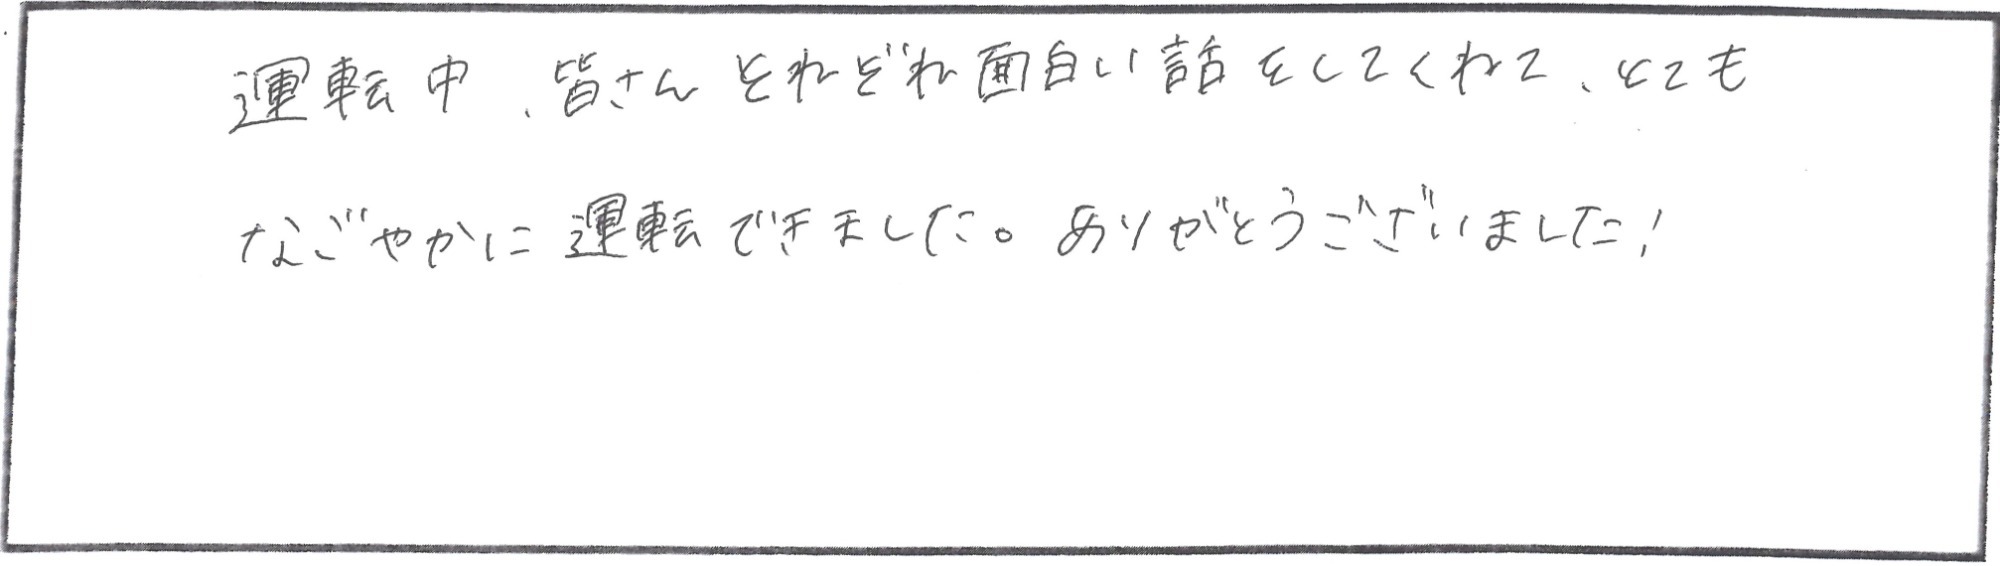 運転中、皆さんそれぞれ面白い話をしてくれて、とても
なごやかに運転できました。ありがとうございました！